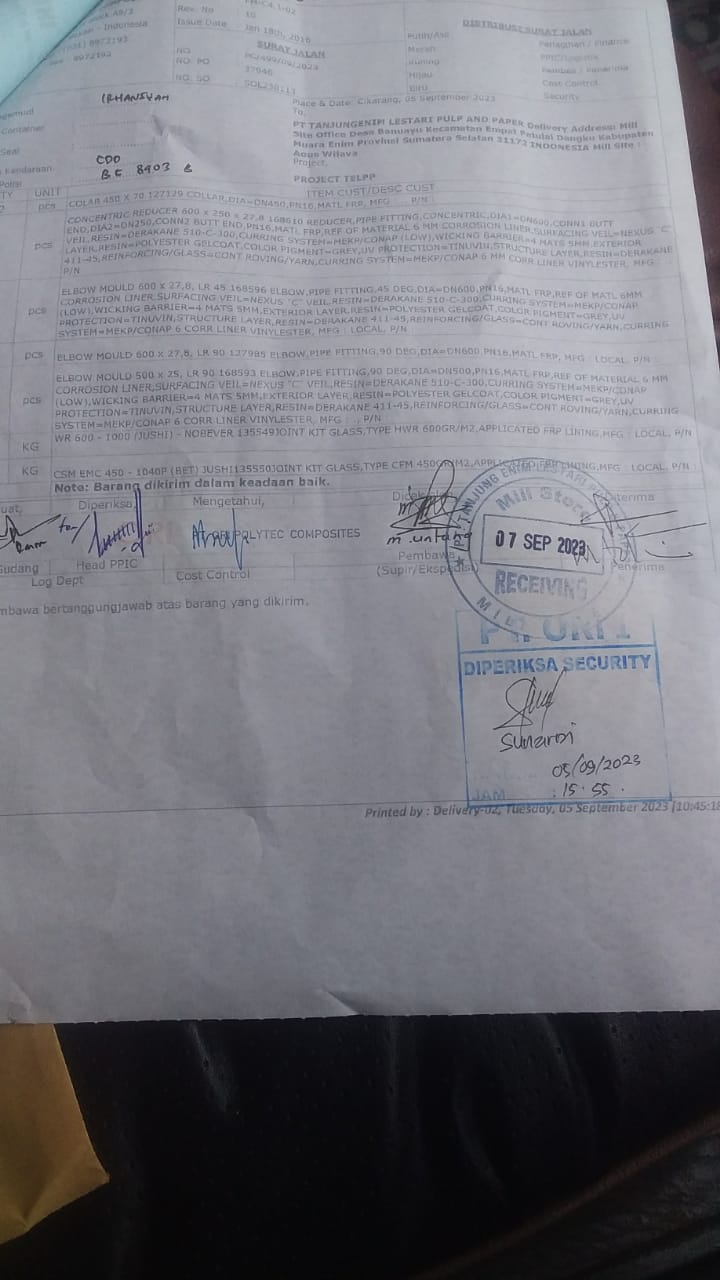 FM-C4.1-02
Rev. No 10
Issue Date Jan 18th, 2016
- Indonesia
8972193
8972192
SURAT JALAN
NO. PO 37946
NO. SO SOL230111
DISTRIBUSI SURAT JALAN
Putih/Asli Penagihan / Finance
Merah PPIC/Logistik
Kuning Pembeli / Penerima
Hijau Cost Control
Biru Security
IRHANSYAH
Container
Seal
Kendaraan CDD
Polisi BE 8903 B
Place & Date: Cikarang, 05 September 2023
To,
PT TANJUNGENIM LESTARI PULP AND PAPER Delivery Address: Mill
Site Office Desa Banuayu Kecamatan Empat Petulai Dangku Kabupaten
Muara Enim Provinsi Sumatera Selatan 31172 INDONESIA Mill Site :
Agus Wijaya
Project,
PROJECT TELPP
TY UNIT ITEM CUST/DESC CUST
pcs COLAR 450 X 70 127129 COLLAR,DIA=DN450,PN16,MATL FRP, MFG : P/N :
pcs CONCENTRIC REDUCER 600 x 250 x 27,8 168610 REDUCER,PIPE FITTING,CONCENTRIC,DIA1=DN600,CONN1 BUTT
END,DIA2=DN250,CONN2 BUTT END,PN16,MATL FRP,REF OF MATERIAL 6 MM CORROSION LINER,SURFACING VEIL=NEXUS "C"
VEIL,RESIN=DERAKANE 510-C-300,CURRING SYSTEM=MEKP/CONAP (LOW),WICKING BARRIER=4 MATS 5MM,EXTERIOR
LAYER,RESIN=POLYESTER GELCOAT,COLOR PIGMENT=GREY,UV PROTECTION=TINUVIN,STRUCTURE LAYER,RESIN=DERAKANE
411-45,REINFORCING/GLASS=CONT ROVING/YARN,CURRING SYSTEM=MEKP/CONAP 6 MM CORR LINER VINYLESTER, MFG :
P/N
pcs ELBOW MOULD 600 x 27,8, LR 45 168596 ELBOW,PIPE FITTING,45 DEG,DIA=DN600,PN16,MATL FRP,REF OF MATL 6MM
CORROSION LINER,SURFACING VEIL=NEXUS "C" VEIL,RESIN=DERAKANE 510-C-300,CURRING SYSTEM=MEKP/CONAP
(LOW),WICKING BARRIER=4 MATS 5MM,EXTERIOR LAYER,RESIN=POLYESTER GELCOAT,COLOR PIGMENT=GREY,UV
PROTECTION=TINUVIN,STRUCTURE LAYER,RESIN=DERAKANE 411-45,REINFORCING/GLASS=CONT ROVING/YARN,CURRING
SYSTEM=MEKP/CONAP 6 CORR LINER VINYLESTER, MFG : LOCAL, P/N
pcs ELBOW MOULD 600 x 27,8, LR 90 127985 ELBOW,PIPE FITTING,90 DEG,DIA=DN600,PN16,MATL FRP, MFG : LOCAL, P/N :
pcs ELBOW MOULD 500 x 25, LR 90 168593 ELBOW,PIPE FITTING,90 DEG,DIA=DN500,PN16,MATL FRP,REF OF MATERIAL 6 MM
CORROSION LINER,SURFACING VEIL=NEXUS "C" VEIL,RESIN=DERAKANE 510-C-300,CURRING SYSTEM=MEKP/CONAP
(LOW),WICKING BARRIER=4 MATS 5MM,EXTERIOR LAYER,RESIN=POLYESTER GELCOAT,COLOR PIGMENT=GREY,UV
PROTECTION=TINUVIN,STRUCTURE LAYER,RESIN=DERAKANE 411-45,REINFORCING/GLASS=CONT ROVING/YARN,CURRING
SYSTEM=MEKP/CONAP 6 CORR LINER VINYLESTER, MFG : ., P/N
KG WR 600 - 1000 (JUSHI) - NOBEVER 135549JOINT KIT GLASS,TYPE HWR 600GR/M2,APPLICATED FRP LINING,MFG : LOCAL, P/N
KG CSM EMC 450 - 1040P (BET) JUSHI135550JOINT KIT GLASS,TYPE CFM 450GR/M2,APPLICATED FRP LINING,MFG : LOCAL, P/N :
Note: Barang dikirim dalam keadaan baik.
Diperiksa, Mengetahui, Diterima
POLYTEC COMPOSITES
m.untang
Gudang Head PPIC Cost Control Pembawa Penerima
Log Dept (Supir/Ekspedisi)
Mill Store
07 SEP 2023
RECEIVING
MILL
mbawa bertanggungjawab atas barang yang dikirim.
DIPERIKSA SECURITY
Sunardi
05/09/2023
JAM : 15.55.
Printed by : Delivery-02, Tuesday, 05 September 2023 [10:45:18